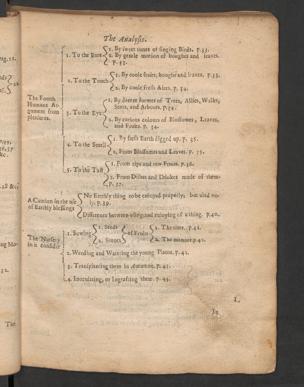 The Analysis.
The Fourth
Humane Ar-
gument from
pleasures.
1. To the Eare
1. By sweet tunes of singing Birds. p. 33.
2. By gentle motion of boughes and leaves.
p. 33.
2. To the Touch
1. By coole fruits, boughs and leaves. p. 33.
2. By coole fresh Aire. p. 34.
3. To the Eye
1. By formes of Trees, Allies, Walks,
Seats, and Arbors. p. 34.
2. By curious colours of Blossomes, Leaves,
and Fruits. p. 34.
4. To the Smell
1. By fresh Earth digged up. p. 35.
2. From Blossomes and Leaves. p. 35.
5. To the Tast
1. From ripe and raw Fruits. p. 36.
2. From Dishes and Drinkes made of them.
p. 37.
A Caution in the use
of Earthly blessings
No Earthly thing to be enjoyed properly, but used on-
ly. p. 39.
Difference between using and enjoying a thing. p. 40.
The Nursery
in it consider
1. Sowing
1. Seeds
2. Stones
of Fruits
1. The time. p. 41.
2. The manner. p. 41.
2. Weeding and Watering the young Plants. p. 42.
3. Transplanting them in Autumne. p. 43.
4. Inoculating, or Ingrafting them. p. 43.
In
The